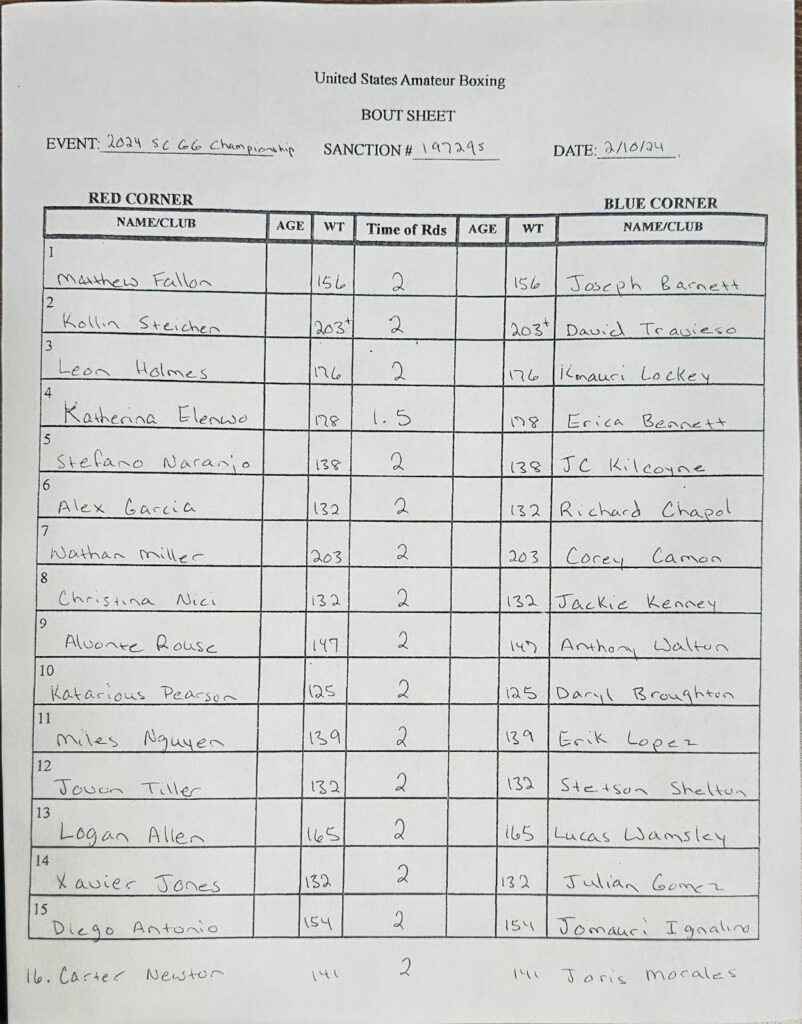 United States Amateur Boxing
BOUT SHEET
EVENT: 2024 SC GG Championship SANCTION # 197295 DATE: 2/10/24
RED CORNER BLUE CORNER
NAME/CLUB AGE WT Time of Rds AGE WT NAME/CLUB
1 Matthew Fallon 156 2 156 Joseph Barnett
2 Kollin Steichen 203+ 2 203+ David Travieso
3 Leon Holmes 176 2 176 Kmauri Lockey
4 Katherina Elenwo 178 1.5 178 Erica Bennett
5 Stefano Naranjo 138 2 138 JC Kilcoyne
6 Alex Garcia 132 2 132 Richard Chapol
7 Nathan Miller 203 2 203 Corey Camon
8 Christina Nici 132 2 132 Jackie Kenney
9 Alvonte Rouse 147 2 147 Anthony Walton
10 Katarious Pearson 125 2 125 Daryl Broughton
11 Miles Nguyen 139 2 139 Erik Lopez
12 Jovon Tiller 132 2 132 Stetson Shelton
13 Logan Allen 165 2 165 Lucas Wamsley
14 Xavier Jones 132 2 132 Julian Gomez
15 Diego Antonio 154 2 154 Jomauri Ignalino
16. Carter Newton 141 2 141 Joris Morales